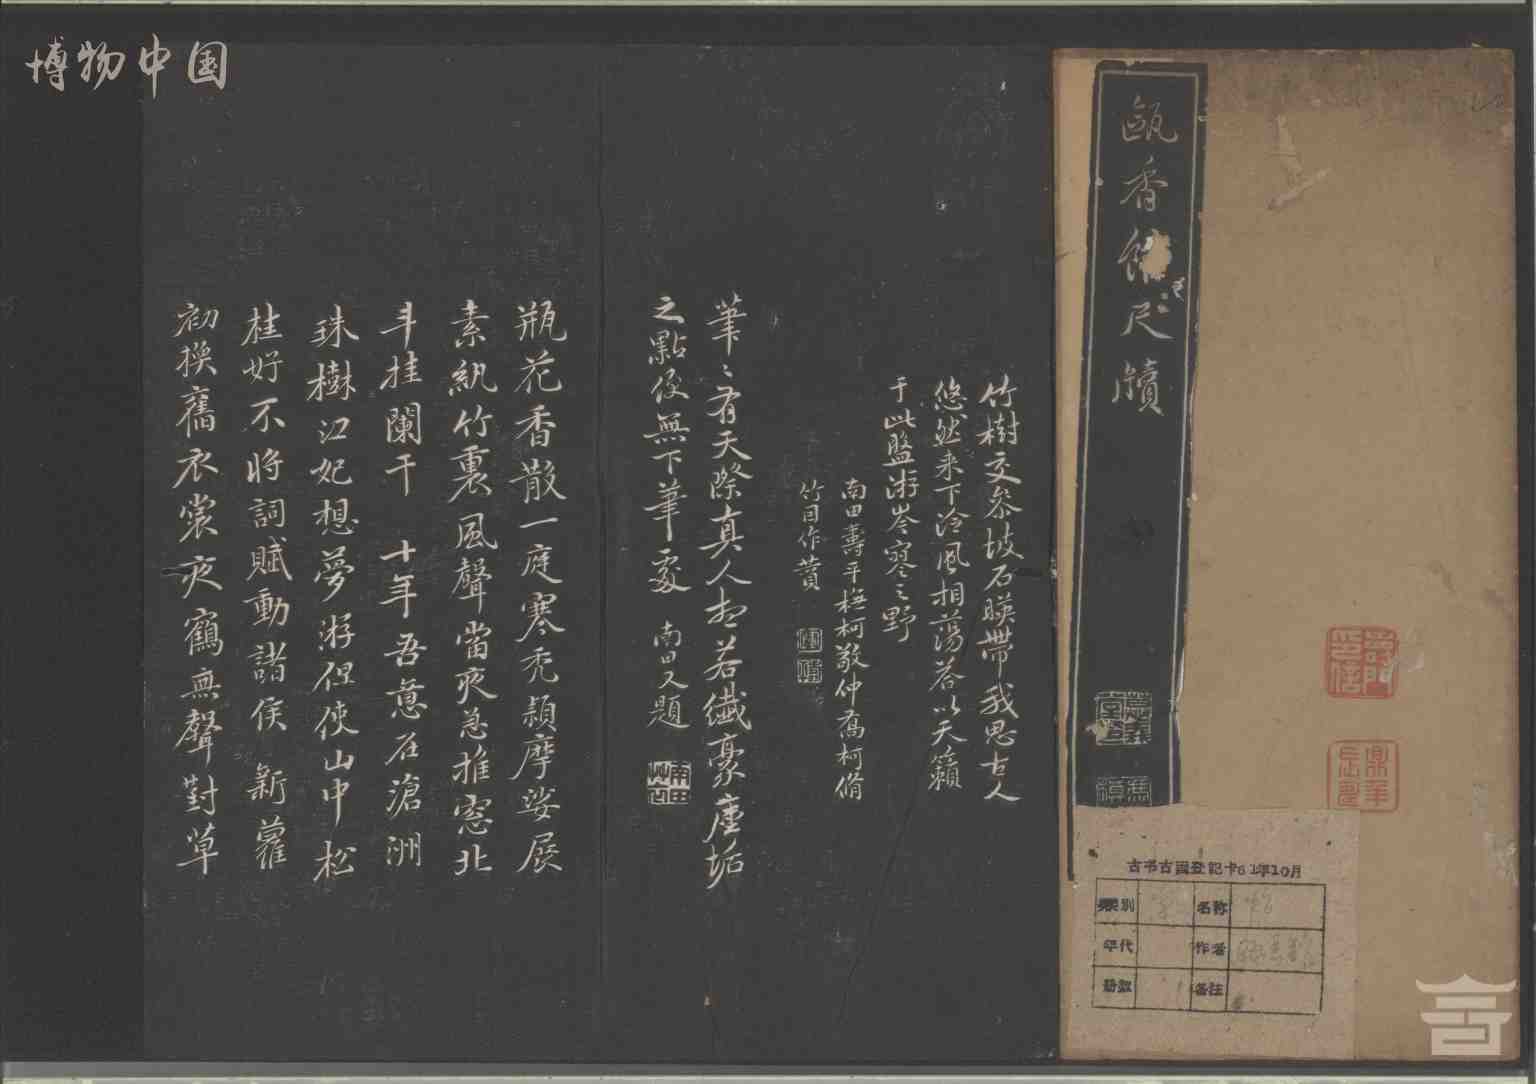 博物中国
甌香館尺牘
古书古画登記卡61年10月
类别
名称
年代
作者
册数
备注
竹樹交參坡石暎帶我思古人
悠然来下泠風相蕩答以天籟
于此盤游岑寥之野
南田壽平橅柯敬仲喬柯脩
竹因作贊
筆〻有天際真人想若纖豪塵垢
之點便無下筆處 南田又題
南田草衣
瓶花香散一庭寒禿穎摩娑展
素紈竹裏風聲當夜急推窓北
斗挂闌干 十年吾意在滄洲
珠樹江妃想夢游但使山中松
桂好不將詞賦動諸侯 新蘿
初換舊衣裳夜鶴無聲對草